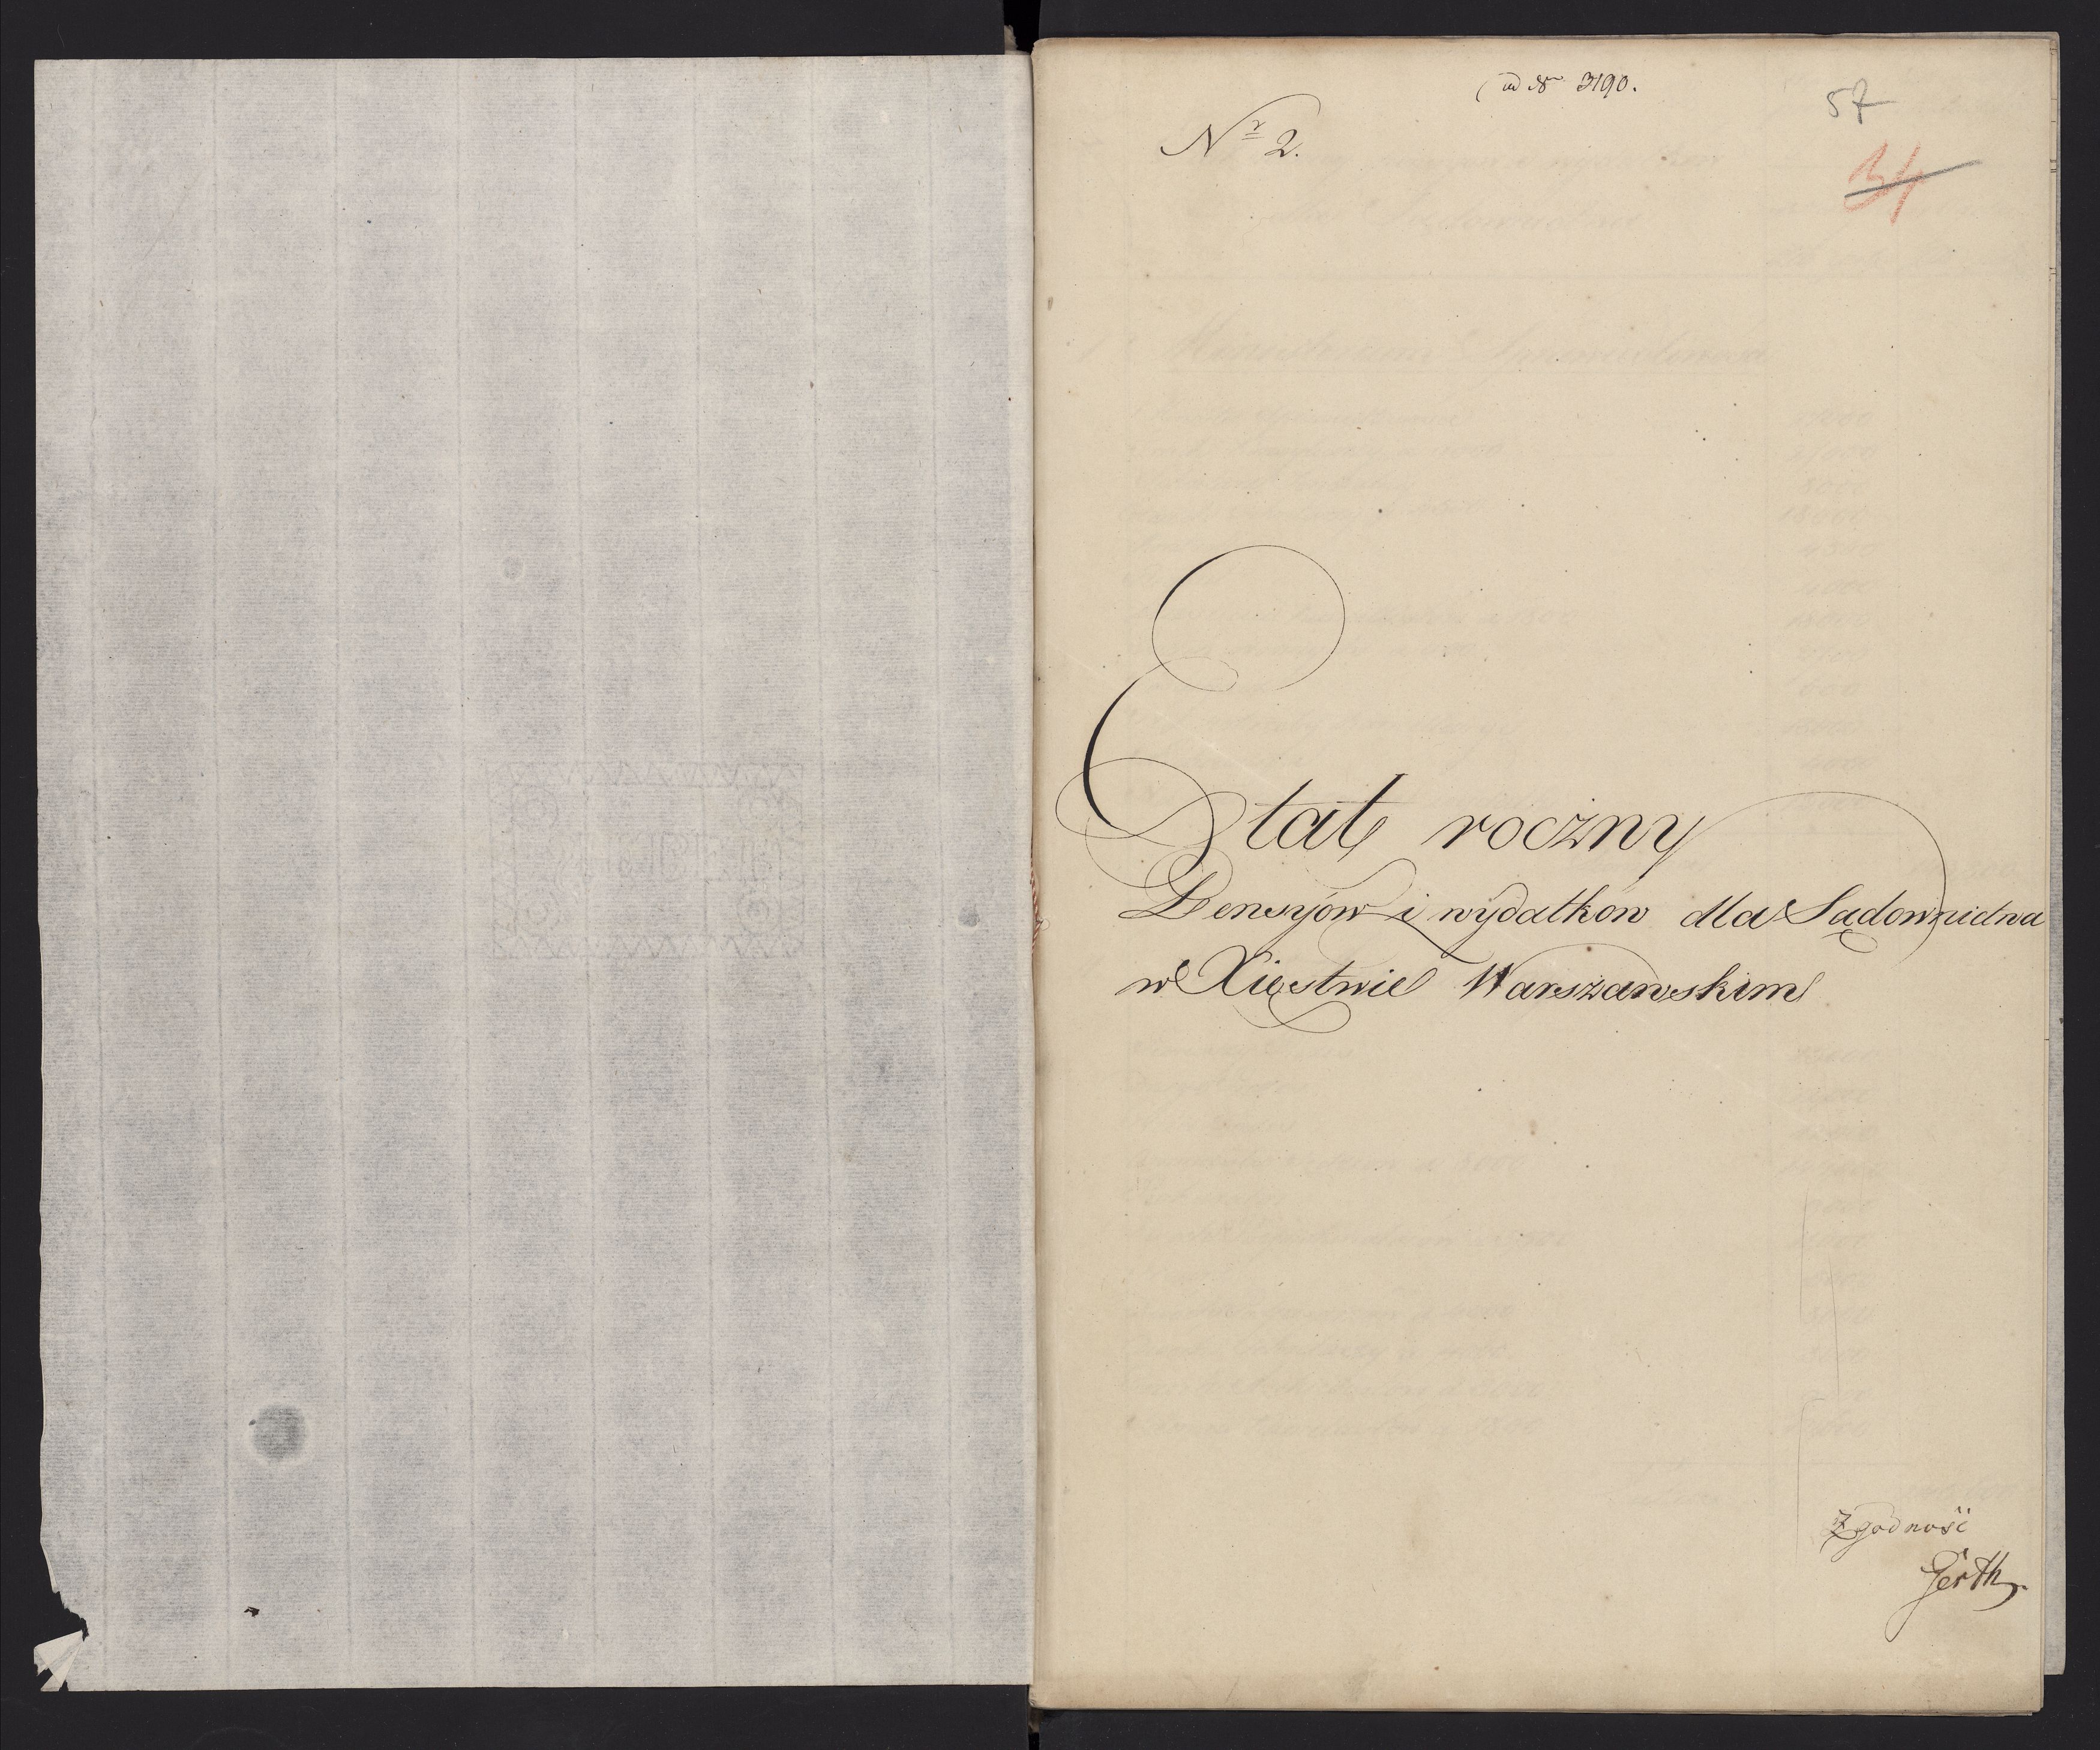 ad Nr 3190.
57
34
Nr 2.
Etat roczny
Pensyow i wydatkow dla Sądownictwa
w Xięstwie Warszawskim
Zgodność
Gerth